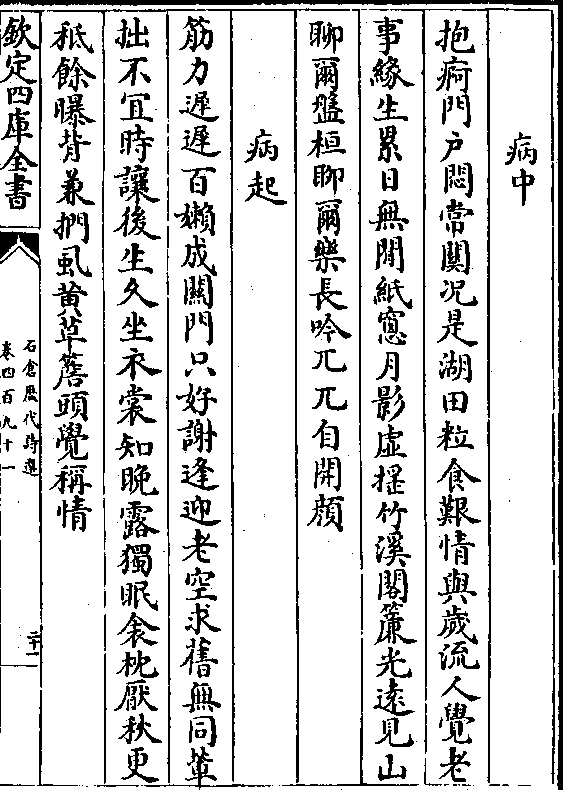 病中
抱痾門戸悶常關况是湖田粒食艱情與歲流人覺老
事緣生累日無閒紙窻月影虚揺竹溪閣簾光遠見山
聊爾盤桓聊爾樂長吟兀兀自開顔
病起
筋力遲遲百嬾成關門只好謝逢迎老空求舊無同輩
拙不宜時讓後生久坐衣裳知晚露獨眠衾枕厭秋更
秪餘曝背兼捫虱黄草簷頭覺稱情
欽定四庫全書
石倉歷代詩選
卷四百九十一
二十一